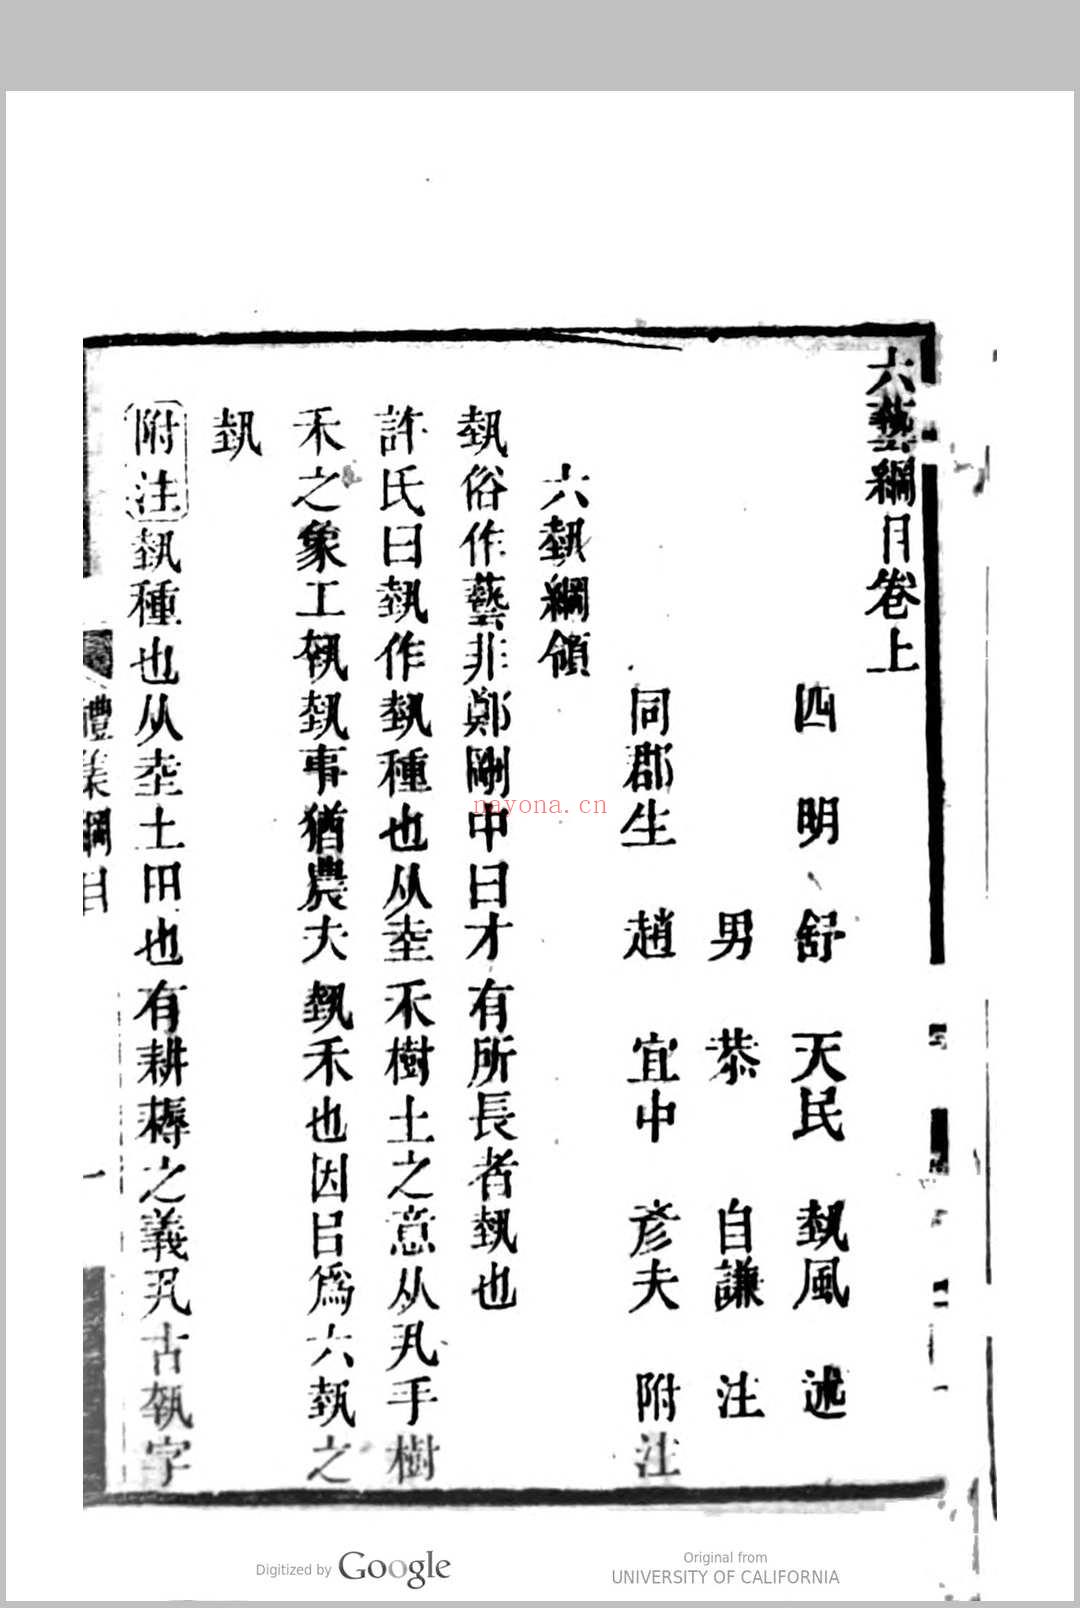 六藝綱目卷上
四明 舒 天民 埶風 述
男 恭 自謙 注
同郡生 趙 宜中 彥夫 附注
六埶綱領
埶俗作藝非鄭剛中曰才有所長者埶也
許氏曰埶作埶種也从坴禾樹土之意从丮手樹
禾之象工執埶事猶農夫埶禾也因目爲六埶之
埶
附注埶種也从坴土田也有耕耨之義丮古執字
禮集綱目
一
nayona.cn
Digitized by Google
Original from
UNIVERSITY OF CALIFORNIA